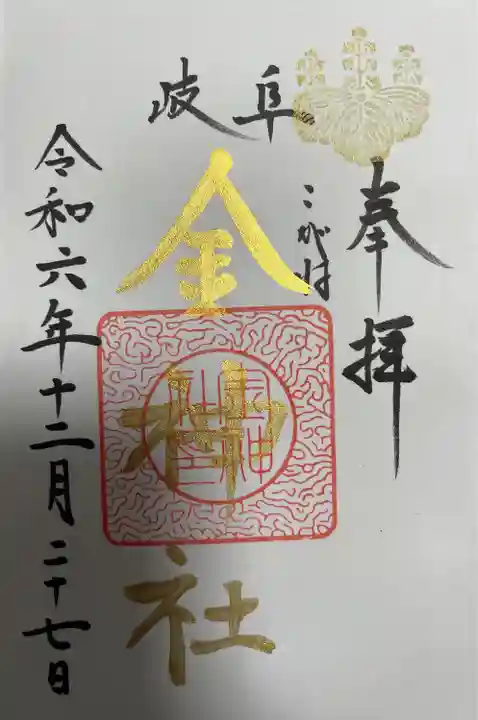 奉拝
こがね
岐阜
金神社
令和六年十二月二十七日